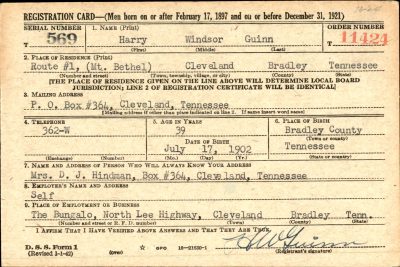 REGISTRATION CARD—(Men born on or after February 17, 1897 and on or before December 31, 1921)
SERIAL NUMBER 1. NAME (Print) ORDER NUMBER
T 569 Harry Windsor Guinn 11424
(First) (Middle) (Last)
2. PLACE OF RESIDENCE (Print)
Route #1, (Mt. Bethel) Cleveland Bradley Tennessee
(Number and street) (Town, township, village, or city) (County) (State)
[THE PLACE OF RESIDENCE GIVEN ON THE LINE ABOVE WILL DETERMINE LOCAL BOARD
JURISDICTION; LINE 2 OF REGISTRATION CERTIFICATE WILL BE IDENTICAL]
3. MAILING ADDRESS
P. O. Box #364, Cleveland, Tennessee
[Mailing address if other than place indicated on line 2. If same insert word same]
4. TELEPHONE 5. AGE IN YEARS 6. PLACE OF BIRTH
362-W 39 Bradley County
DATE OF BIRTH (Town or county)
July 17, 1902 Tennessee
(Exchange) (Number) (Mo.) (Day) (Yr.) (State or country)
7. NAME AND ADDRESS OF PERSON WHO WILL ALWAYS KNOW YOUR ADDRESS
Mrs. D. J. Hindman, Box #364, Cleveland, Tennessee
8. EMPLOYER'S NAME AND ADDRESS
Self
9. PLACE OF EMPLOYMENT OR BUSINESS
The Bungalo, North Lee Highway, Cleveland Bradley Tenn.
(Number and street or R. F. D. number) (Town) (County) (State)
I AFFIRM THAT I HAVE VERIFIED ABOVE ANSWERS AND THAT THEY ARE TRUE.
D. S. S. Form 1 GPO 16—21630-1 H W Guinn
(Revised 1-1-42) (Registrant's signature)